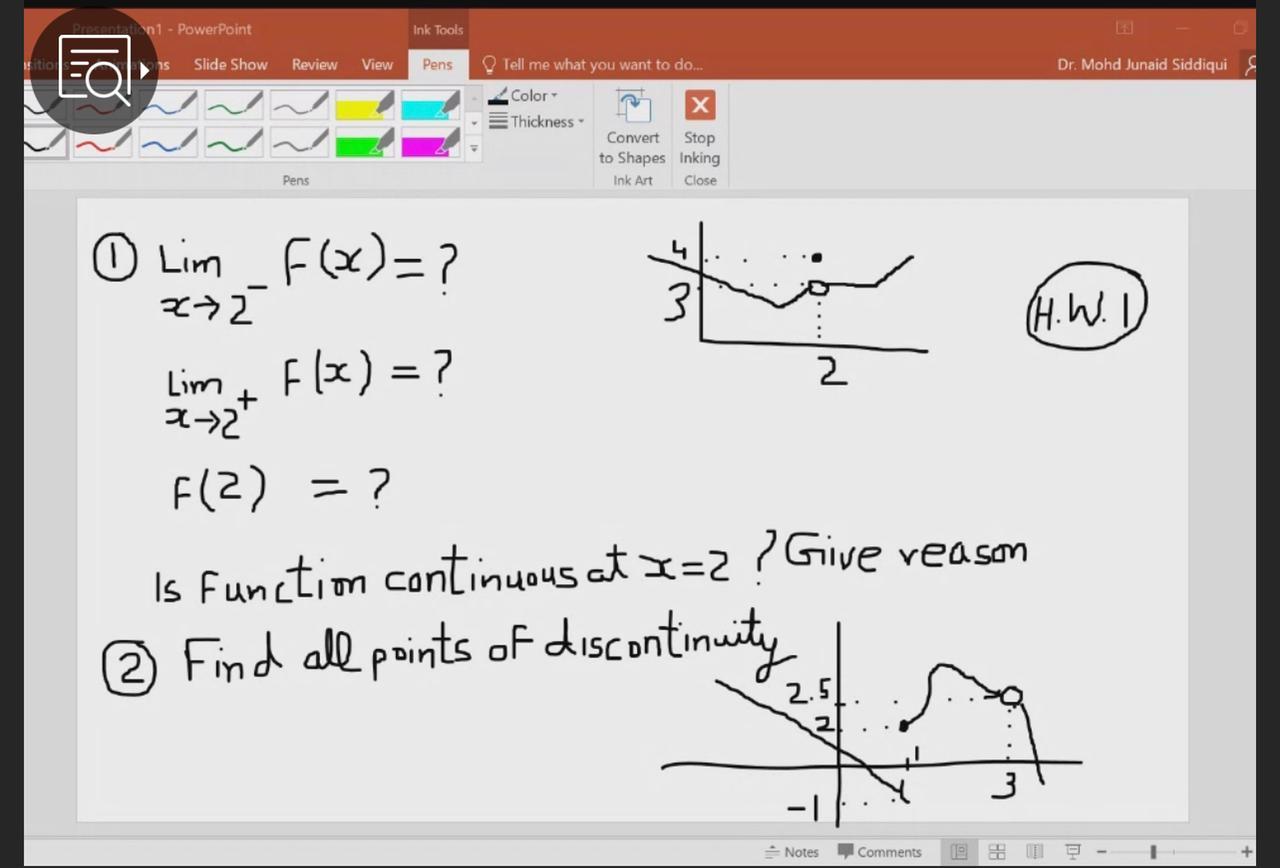 Presentation1 - PowerPoint
Ink Tools
Slide Show Review View Pens Tell me what you want to do...
Dr. Mohd Junaid Siddiqui
Color
Thickness
Convert to Shapes
Stop Inking
Pens
Ink Art
Close
① Lim x→2⁻ F(x) = ?
Lim x→2⁺ F(x) = ?
F(2) = ?
4
3
2
H.W. 1
Is Function continuous at x=2 ? Give reason
② Find all points of discontinuity
2.5
2
1
3
-1
Notes Comments